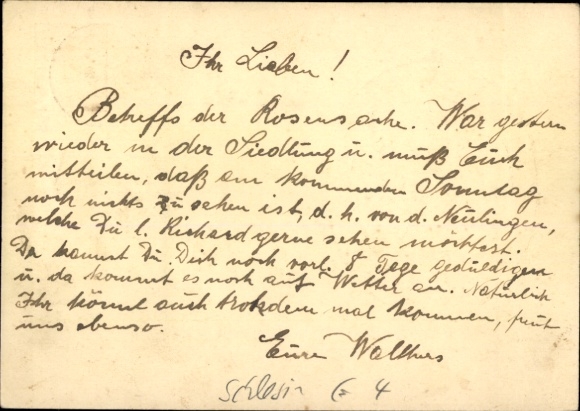 Ihr Lieben!
Betreffs der Rosensache. War gestern
wieder in der Siedlung u. muß Euch
mitteilen, daß am kommenden Sonntag
noch nichts zu sehen ist, d. h. von d. Neulingen,
welche Du l. Richard gerne sehen möchtest.
Da kannst Du Dich noch vorl. 8 Tage geduldigen
u. da kommt es noch auf Wetter an. Natürlich
Ihr könnt auch trotzdem mal kommen, freut
uns ebenso.
Eure Walthers
4